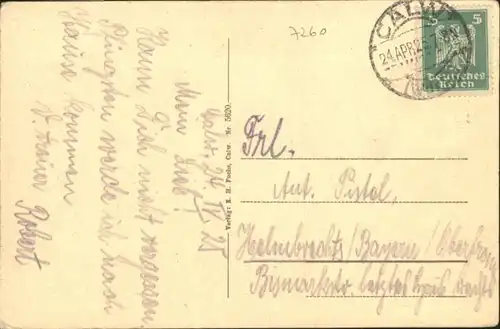 7260
CALW
24.APR.25
5 5
Deutsches
Reich
Calw. 24. IV. 25
Mein Lieb!
Kann Dich nicht vergessen
Pfingsten werde ich nach
Hause kommen
Robert
Verlag: R. H. Fuchs, Calw. Nr 5620.
Frl.
Ant. Pistol,
Helmbrechts/Bayern/Oberfran
Bismarckstr letztes Haus rechts